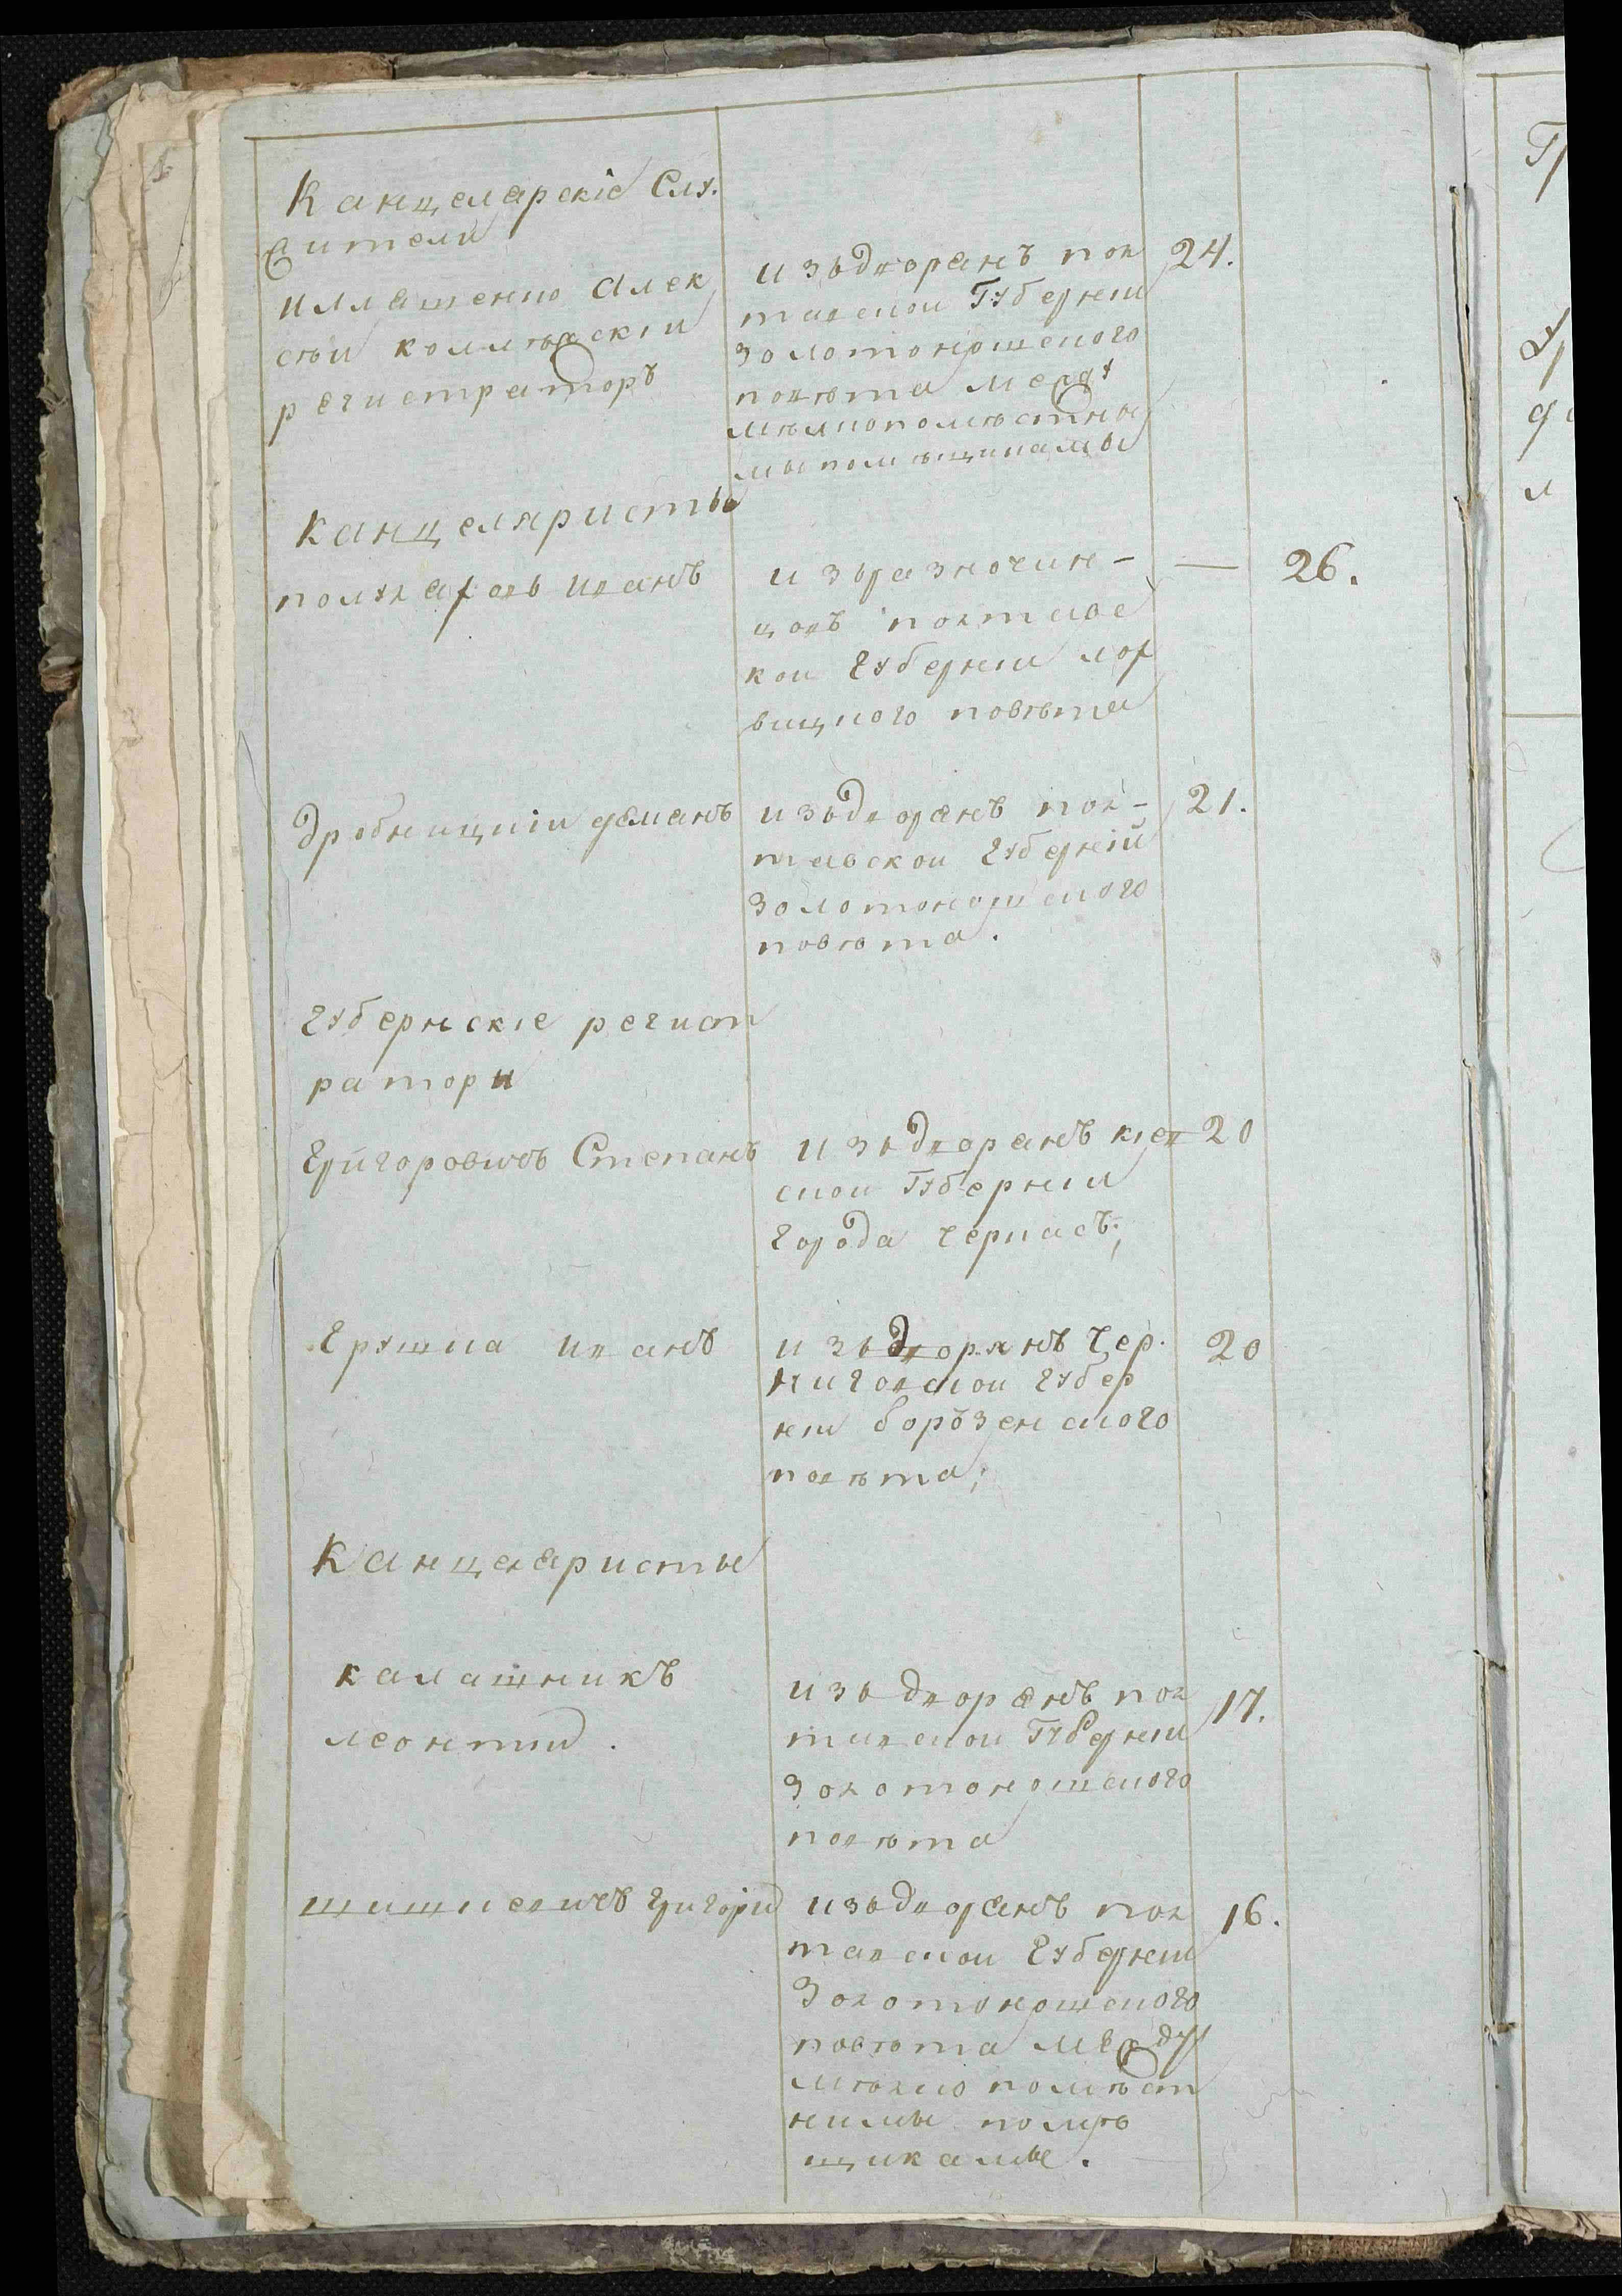 Канцелярскіе Слу.
жители
Илляшенко Алек
сѣй коллѣжскіи
регистраторъ
изъдворянъ пол
тавскои Губерніи
золотоношского
повѣта между
мѣлкопомѣстны
мы помѣщикамы
24.
Канцеляристы
полукаровъ Иванъ
изъразночин-
цовъ полтавс
кои Губерніи лох
вицкого повѣта
—
26.
дробницкіи романъ
изъдворянъ пол-
тавскои Губерніи
золотоношского
повѣта.
21.
Губернскіе регист
ратори
Григоровичъ Степанъ
изъдворянъ кіев
скои Губерніи
города черкасъ;
20
Грушка Иванъ
изъдворянъ Чер.
ниговскои Губер
ніи борозенского
повѣта;
20
Канцеляристы
калашникъ
леонтіи.
изъ дворянъ пол
тавскои Губерніи
Золотоношского
повѣта
17.
шишкевичъ григоріи
изъдворянъ пол
тавскои Губерніи
Золотоношского
повѣта между
мѣлко помѣст
нимы помѣ
щикамы.
16.